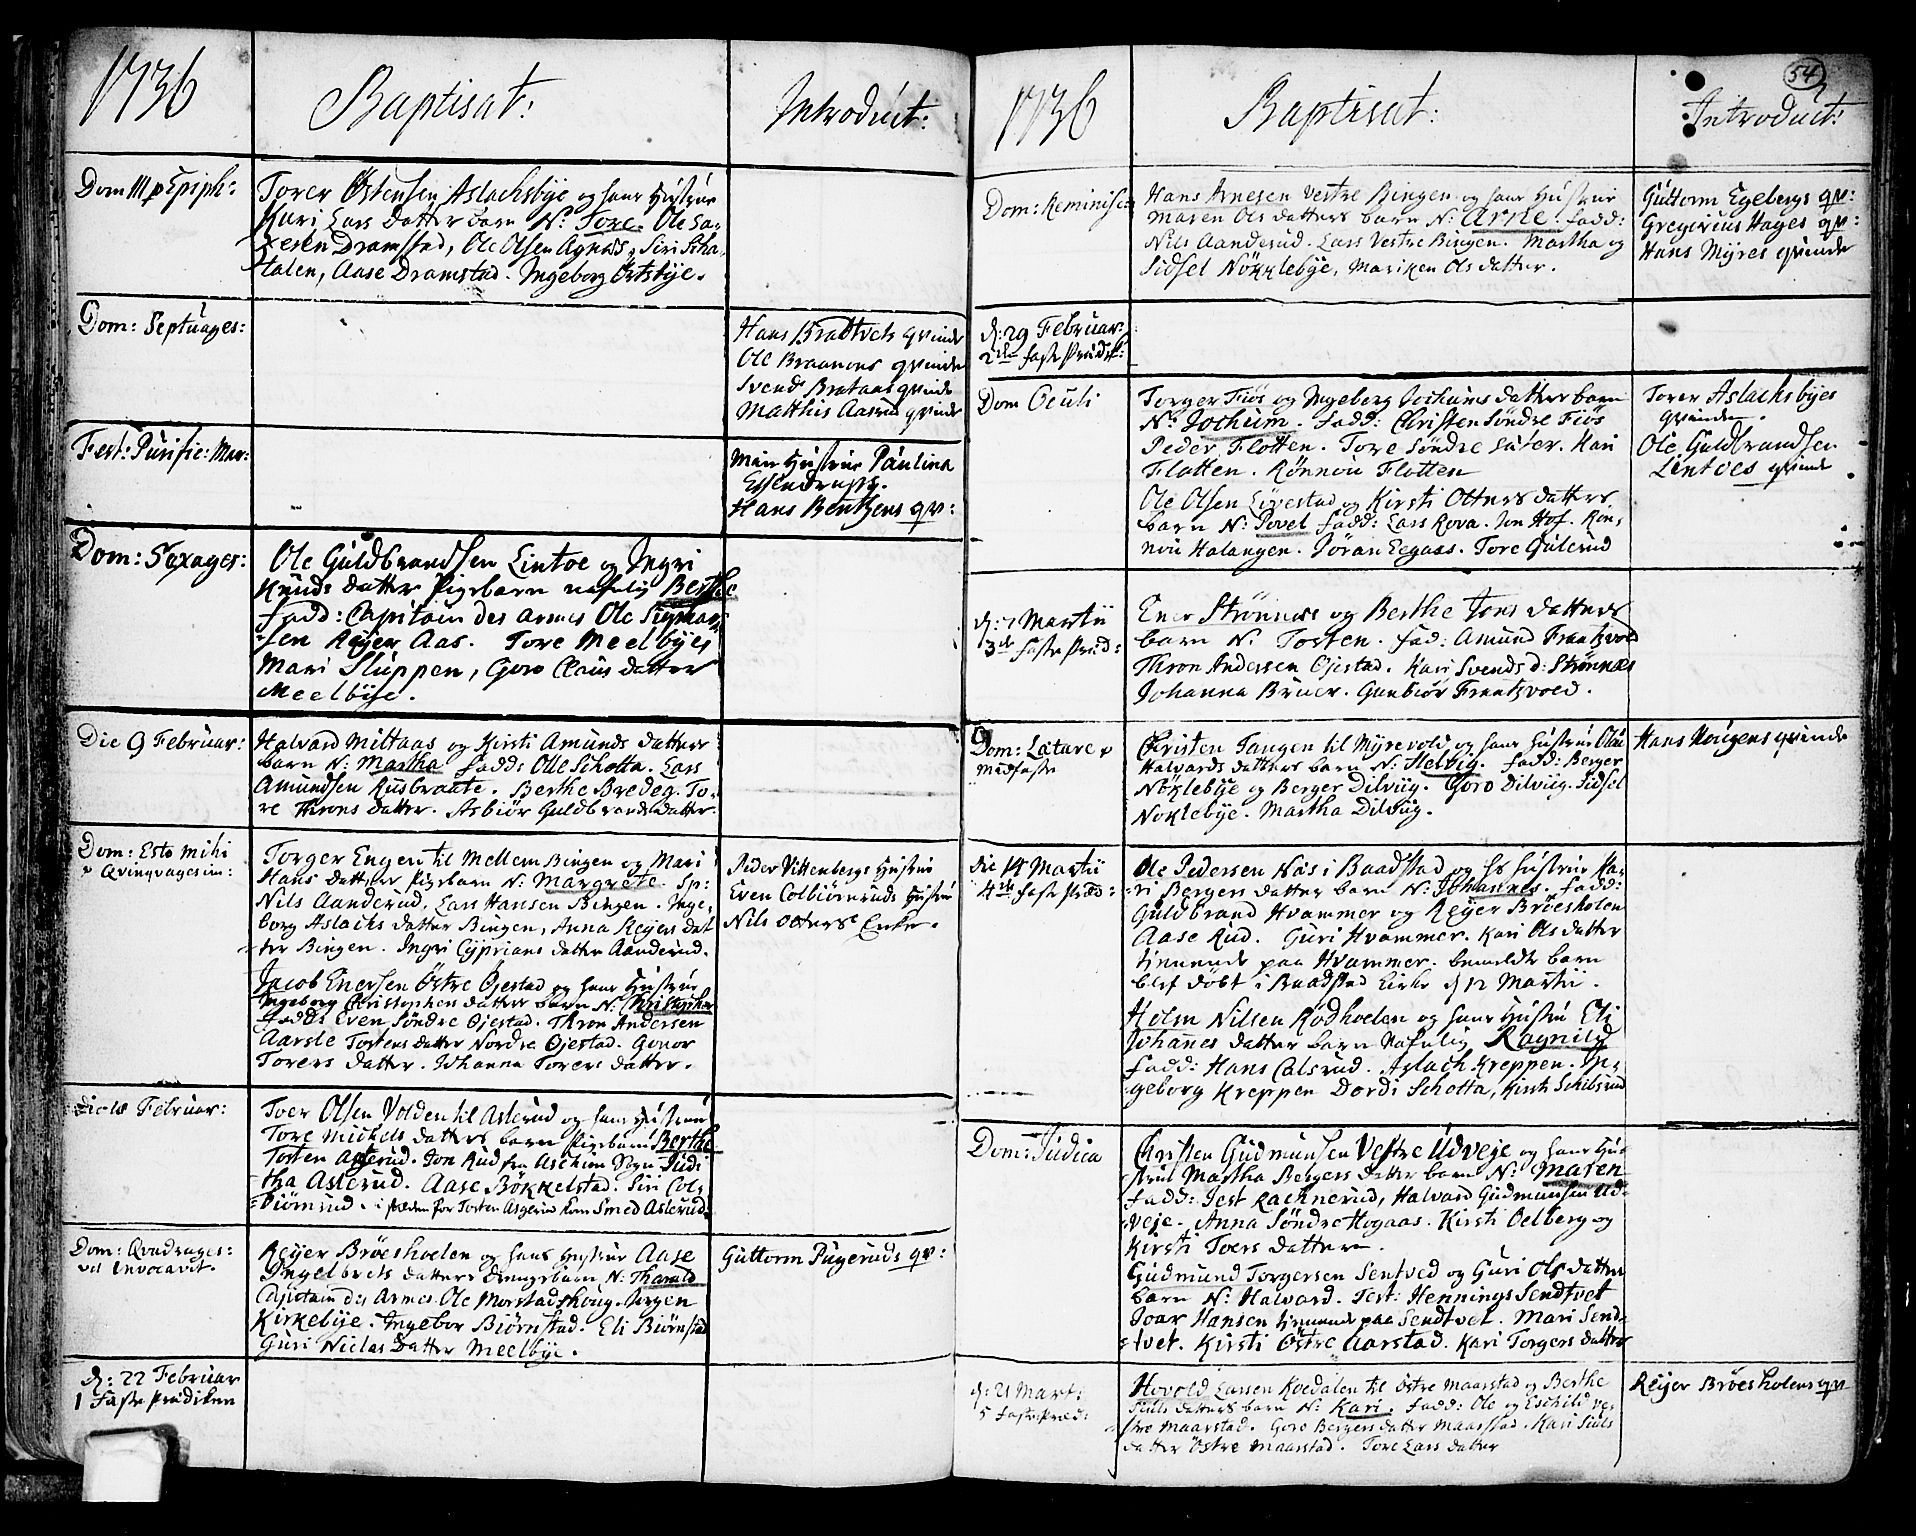 1736
Baptisat:
Introduct:
Dom III p Epiph:
Torer Östensen Aslachsbye og hans Hustrue
Kari Lars datter barn N: Tore. Ole La-
Dramstad, Ole Olsen Agnæs, Siri Scha-
talen, Aase Dramstad. Ingeborg Örtsbye.
Dom: Septuages:
Hans Bradtvets qvinde
Ole Braanons qvinde
Svend Brataas qvinde
Matthis Aaserud qvinde
Fest: Purific: Mar:
Min Hustrue Paulina
Essendrups.
Hans Bentzens qv:
Dom: Sexages:
Ole Guldbrandsen Lintoe og Ingri
Knuds datter Pigebarn nafnlig Berthe
fadd: Capitain des Armes Ole Stephan-
sen Reyer Aas. Tore Meelbyes
Mari Sluppen, Goro Claus datter
Meelbye.
Die 9 Februar:
Halvard Miltaas og Kirsti Amunds datters
barn N: Martha fadd: Olle Schotta. Lars
Amundsen Kusbraate. Berthe Bredeg. To-
re Throns datter. Asbiör Guldbrands datter.
Dom: Esto mihi
v Qvinqvagesim:
Torger Engen til Mellem Bingen og Mari
Hans datter Pigebarn N: Margrete Sp:
Nils Aanderud, Lars Hansen Bingen. Inge-
borg Aslachs datter Bingen, Anna Reyers dat
ter Bingen. Ingri Cyprians datter Aanderud.
Peder Vittenbergs Hustru
Even Colbiörnruds Hustru
Nils Otters Enke.
Jacob Enersen Östre Öjestad og hans Hustrue
Ingeborg Christophen datter barn N: Christopher
fadd: Even Söndre Öjestad. Thron Andersen
Aarsle Torstens datter Nordre Öjestad. Gonor
Torers datter. Johanna Torers datter.
Februar:
Toer Olsen Volden til Asterud og hans Hustrue
Tore Michels datters barn Pigebarn Berthe
Torsten Asterud. Jon Rud fra Aschim Sogn Judi
tha Asterud. Aase Bökkelstad. Siri Col-
biörnrud. i stæden for Torsten Asgerud kom Smed Asterud.
Dom: Qvadrages:
vel Invocavit.
Reyer Bröesholen og hans Hustrue Aase
Ingelbrets datters Drengebarn N: Tharald
Capitain des Armes Ole Morstadshoug. Jörgen
Kirkebye. Ingebor Biörnstad. Eli Biörnstad
Guri Niclas datter Meelbye.
Guttorm Pugeruds qv:
d: 22 Februar
1 Faste Prædiken
54
1736
Baptisat:
Introduct:
Dom: Reminisc:
Hans Arnesen Vestre Bingen og hans Hustrue
Maren Ols datters barn N: Arne. fadd:
Nils Aanderud. Lars Vestre Bingen. Martha og
Sidsel Nökklebye, Mariken Ols datter.
Guttorm Egebergs qv:
Gregirius Hages qv:
Hans Myres qvinde
d: 29 Februar:
2den faste Prædik:
Dom Oculi
Torger Fiös og Ingeborg Jochums datters barn
N: Jochum. fadd: Christen Söndre Fiös
Peder Flotten. Tore Söndre Sæter. Kari
Flotten. Rönnou Flotten
Torer Aslachsbyes
qvinde.
Ole Guldbrandsen
Lintoes qvinde
Ole Olsen Livestad og Kirsti Otters datters
barn N: Povel fadd: Lars Rova. Jon Hof. Rön-
nou Halangen. Jöran Eegaas. Tore Gulerud
d: 7 Martii
3de faste Præd:
Ener Strönnæs og Berthe Jons datters
barn N: Torsten. fad: Amund Frantzvold
Thron Andersen Öjestad. Kari Svends d: Strönnæs
Johanna Bruer. Gunbiör Frantzvold.
Dom: Lætare v
Midfaste
Christen Tangen til Myrevold og hans Hustrue Olau
Halvards datters barn N: Helvig. fadd: Berger
Nöklebye og Berger Dilviig. Goro Dilviig. Sidsel
Noklebye. Martha Dilviig.
Hans Hougens qvinde
die 14 Martii
4de faste Præd:
Ole Pedersen Næs i Baadstad og hs Hustrue Ka-
ri Bergers datter barn N: Johannes. fadd:
Guldbrand Hvammer og Reyer Bröesholen
Aase Rud. Guri Hvammer. Kari Ols datter
tienende paa Hvammer. bemeldte barn
blef döbt i Baadstad Kirke d 12 Martii.
Holm Nilsen Rödhoelen og hans Hustru Eli
Johanes datter barn Nafnlig Ragnild
fadd: Hans Calsrud. Aslach Kreppen. In-
geborg Kreppen Dordi Schotta, Kirsti Schibsrud
Dom: Judica
Christen Gudmunsen Vestre Udveje og hans Hu-
strue Martha Bergers datter barn N: Maren
fadd: Jest Rachnerud, Halvard Gudmunsen Ud-
veje. Anna Söndre Hogaas. Kirsti Oelberg og
Kirsti Toers datter.
Gudmund Torgersen Sentved og Guri Ols datter
barn N: Halvard. Test: Hennings Sendtvet
Joar Hansen tienende paa Sendtvet. Mari Send-
tvet. Kirsti Östre Aarstad. Kari Torgers datter
d: 21 Mart:
5 faste Præd:
Hovold Larsen Koedalen til Östre Maarstad og Berthe
Siuls datters barn N: Kari. fadd: Ole og Eschild ve-
stre Maarstad. Goro Bergers datter Maarstad. Kari Siuls
datter Östre Maarstad. Tore Lars datter
Reyer Bröesholens qv